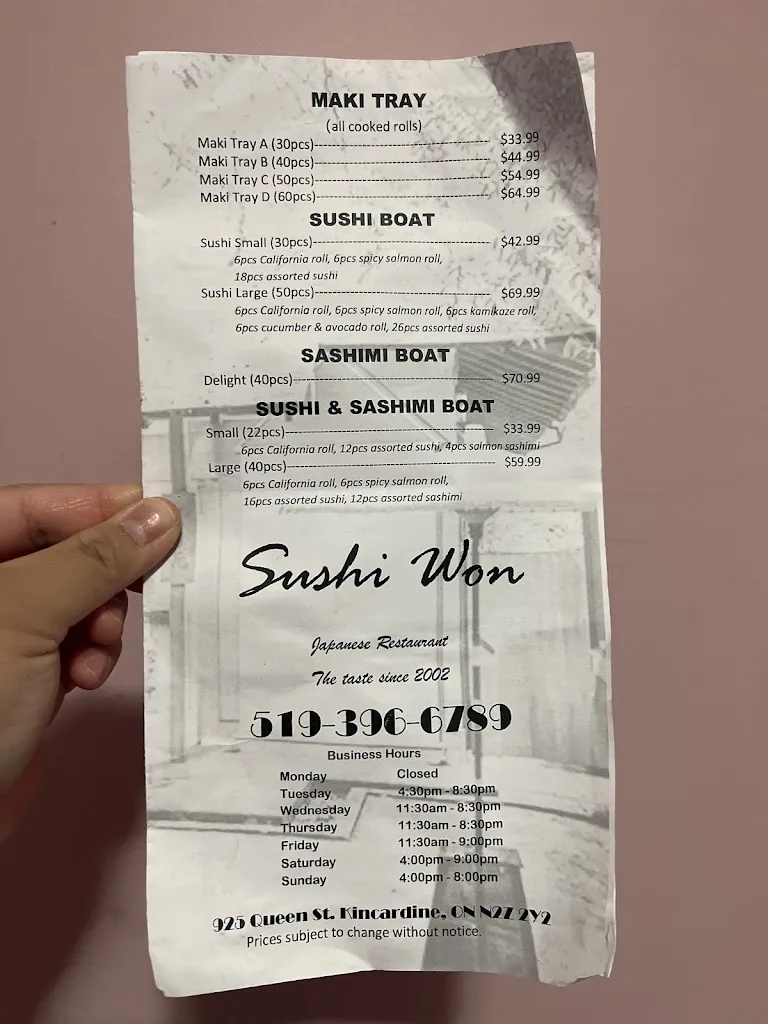 MAKI TRAY
(all cooked rolls)
Maki Tray A (30pcs)---------------------------------------- $33.99
Maki Tray B (40pcs)---------------------------------------- $44.99
Maki Tray C (50pcs)---------------------------------------- $54.99
Maki Tray D (60pcs)---------------------------------------- $64.99
SUSHI BOAT
Sushi Small (30pcs)---------------------------------------- $42.99
6pcs California roll, 6pcs spicy salmon roll,
18pcs assorted sushi
Sushi Large (50pcs)---------------------------------------- $69.99
6pcs California roll, 6pcs spicy salmon roll, 6pcs kamikaze roll,
6pcs cucumber & avocado roll, 26pcs assorted sushi
SASHIMI BOAT
Delight (40pcs)---------------------------------------- $70.99
SUSHI & SASHIMI BOAT
Small (22pcs)---------------------------------------- $33.99
6pcs California roll, 12pcs assorted sushi, 4pcs salmon sashimi
Large (40pcs)---------------------------------------- $59.99
6pcs California roll, 6pcs spicy salmon roll,
16pcs assorted sushi, 12pcs assorted sashimi
Sushi Won
Japanese Restaurant
The taste since 2002
519-396-6789
Business Hours
Monday Closed
Tuesday 4:30pm - 8:30pm
Wednesday 11:30am - 8:30pm
Thursday 11:30am - 8:30pm
Friday 11:30am - 9:00pm
Saturday 4:00pm - 9:00pm
Sunday 4:00pm - 8:00pm
925 Queen St. Kincardine, ON N2Z 2Y2
Prices subject to change without notice.